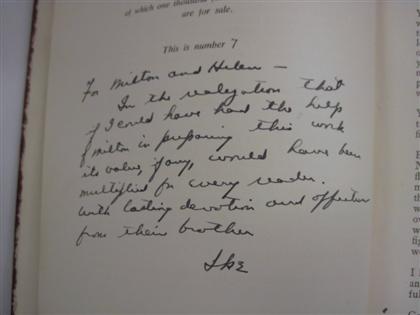 of which one thousand
are for sale.
This is number 7
For Milton and Helen —
In the realization that
if I could have had the help
of Milton in preparing this work
its value, if any, would have been
multiplied for every reader.
With lasting devotion and affection
from their brother
Ike